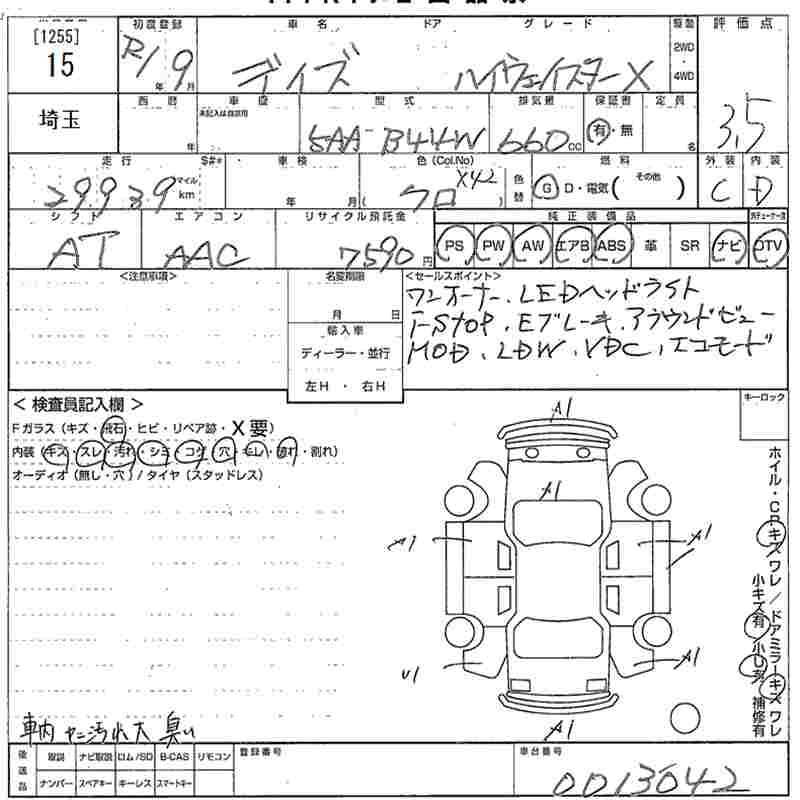 [1255]
15
埼玉
初度登録
R1 年 9 月
車名
デイズ
ドア
グレード
ハイウェイスターX
駆動
2WD
・
4WD
評価点
3.5
西暦
年
車歴
未記入は自家用
型式
5AA-B44W
排気量
660 CC
保証書
有・無
定員
名
走行
29939
マイル
km
S#*
車検
年 月
色(Col.No)
クロ
X42
色替
燃料
G・D・電気( その他 )
外装
C
内装
D
シフト
AT
エアコン
AAC
リサイクル預託金
7590 円
純正装備品
PS PW AW エアB ABS 革 SR ナビ
DTV
<注意事項>
名変期限
月 日
輸入車
ディーラー・並行
左H ・ 右H
<セールスポイント>
ワンオーナー、LEDヘッドライト
I-STOP、Eブレーキ、アラウンドビュー
MOD、LDW、VDC、エコモード
< 検査員記入欄 >
Fガラス (キズ・飛石・ヒビ・リペア跡・X要)
内装 (キズ・スレ・汚れ・シミ・コゲ・穴・キレ・破れ・割れ)
オーディオ (無し・穴) / タイヤ (スタッドレス)
車内 ヤニ汚れ大 臭い
キーロック
A1
A1
A1
A1
U1
A1
A1
ホイル・CP キズ ワレ / ドアミラー キズ ワレ
小キズ有 / 小U有 / 補修有
後送品
取説
ナビ取説
ロム/SD
B-CAS
リモコン
ナンバー
スペアキー
キーレス
スマートキー
登録番号
車台番号
0013042